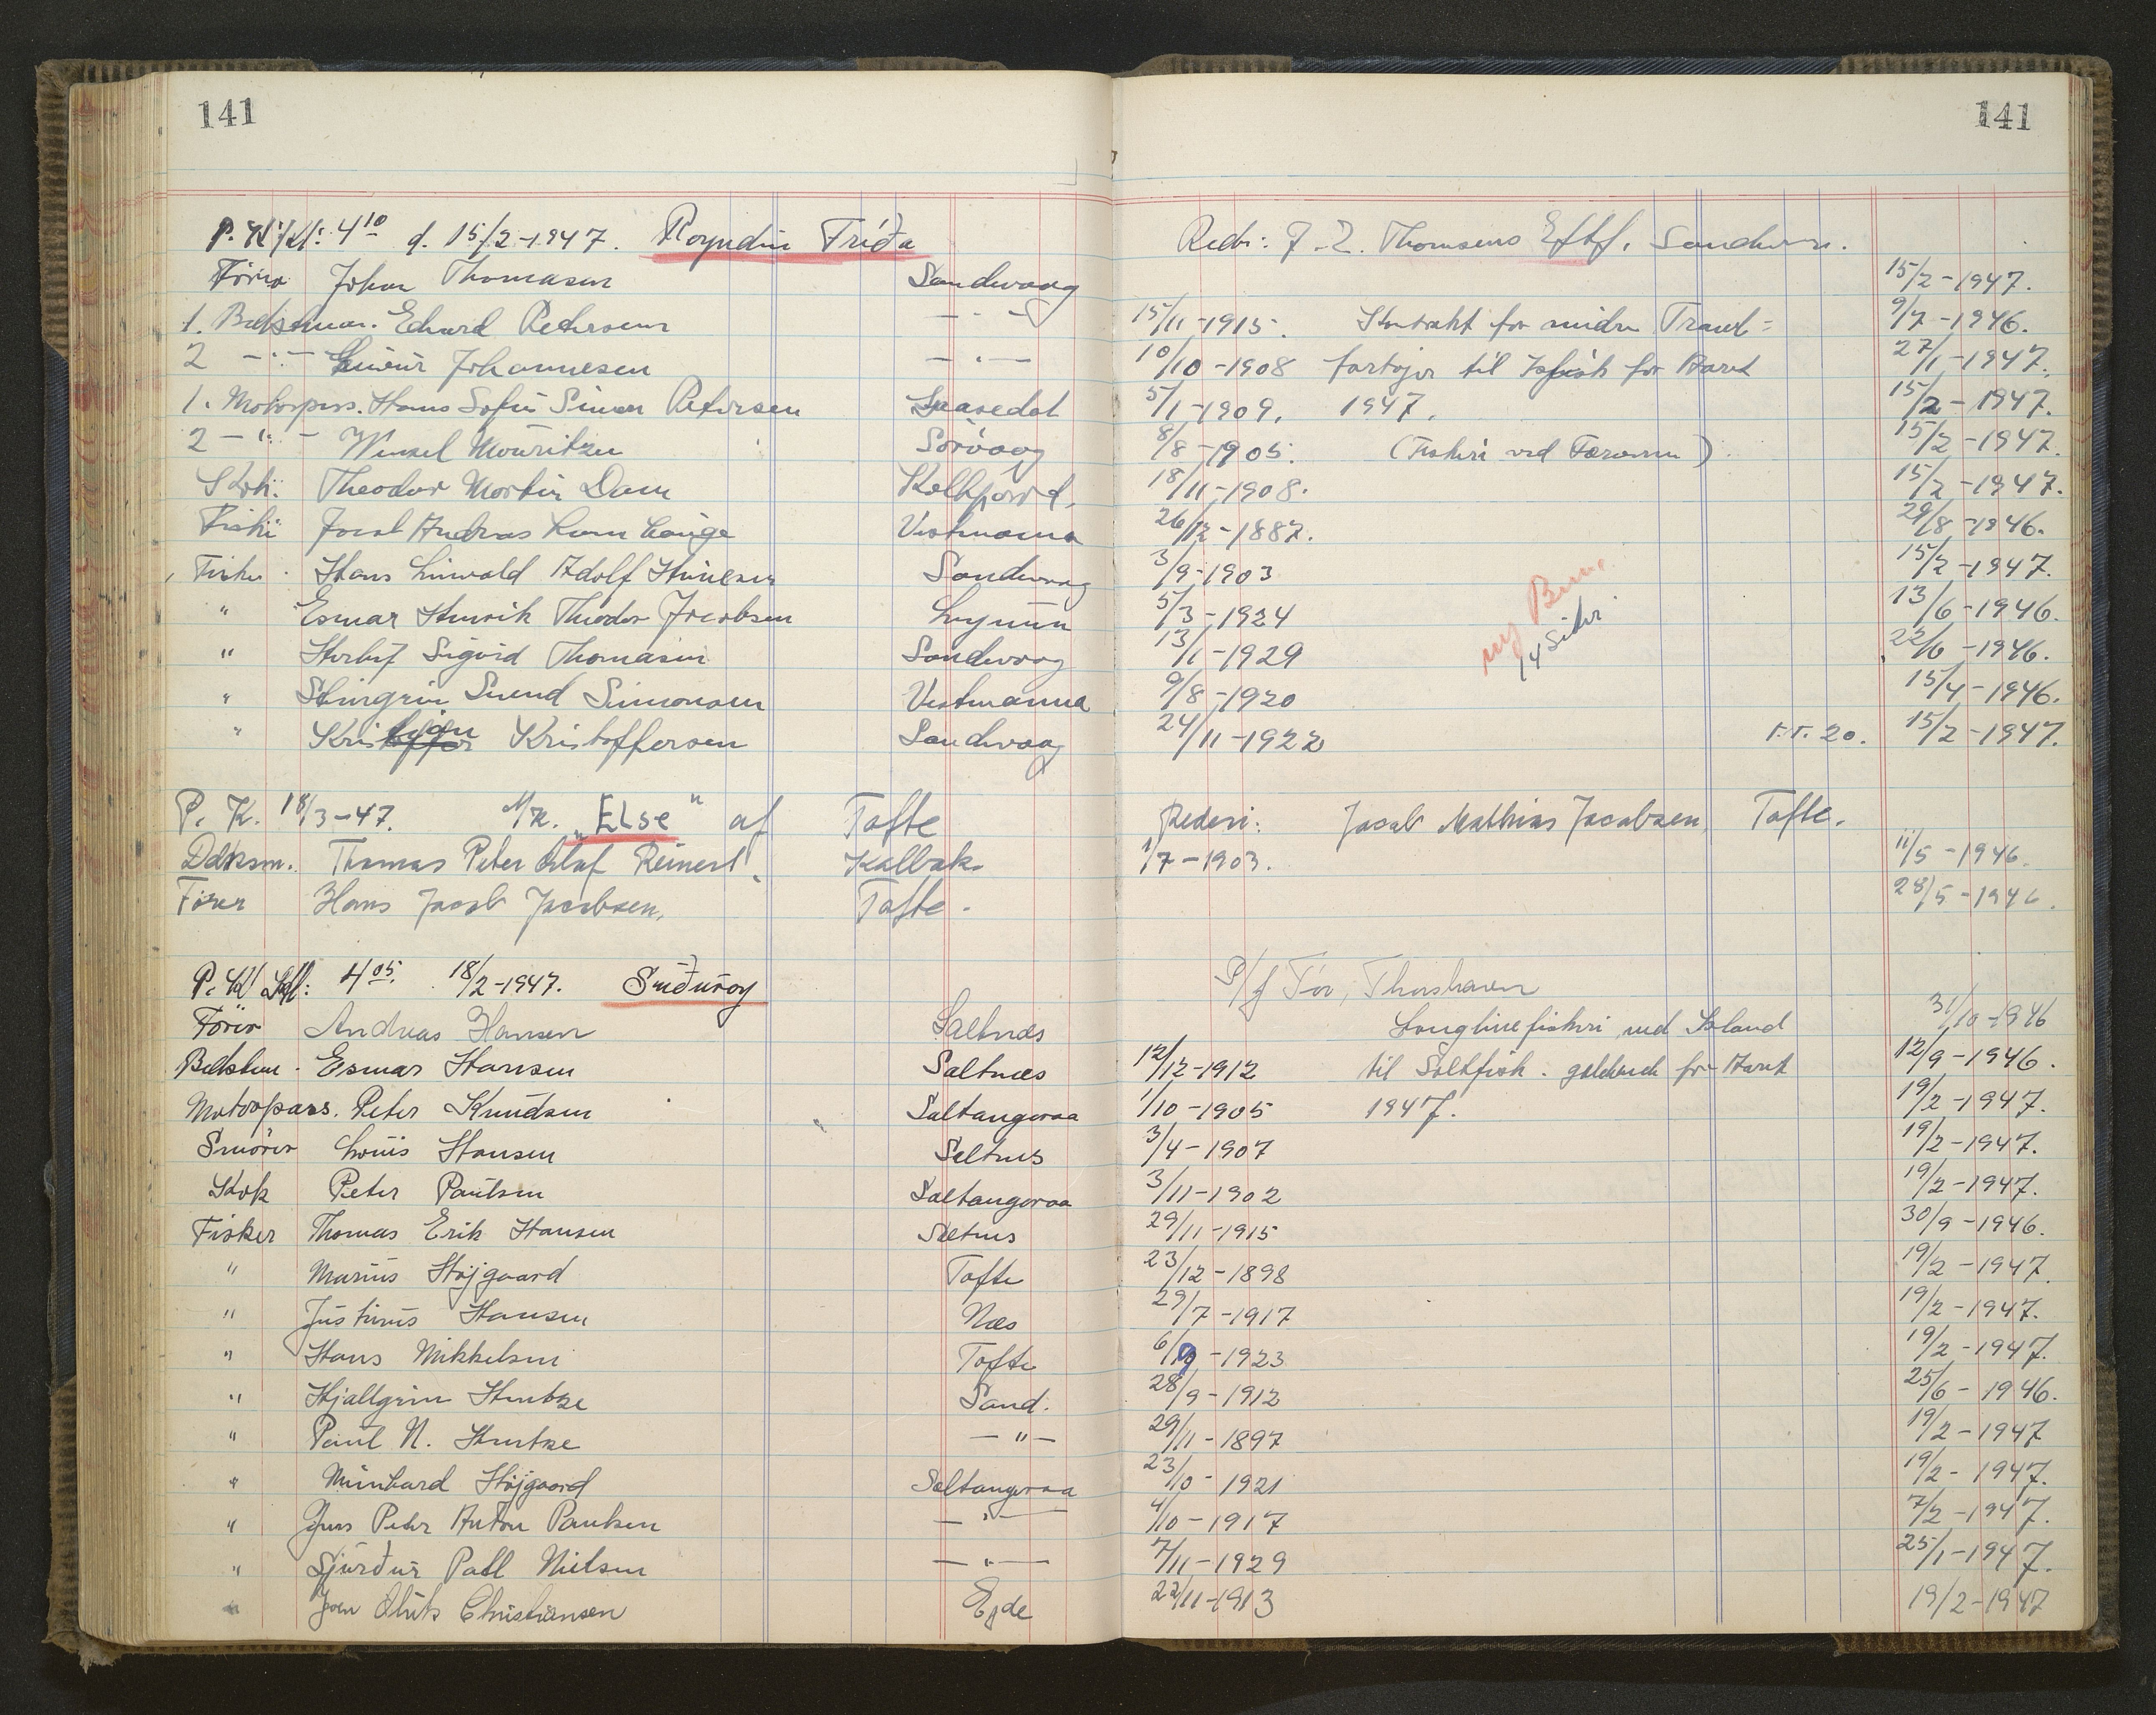 141
141
P. K. Kl: 4 10 d. 15/2-1947. Royndin Fríða Rederi: J. Z. Thomsens Eftf. Sandevaag.
Förer Johan Thomasen Sandevaag 15/2-1947.
1. Bedstman. Edvard Petersen -"- 15/11-1915. Kontrakt for mindre Trawl= 9/7-1946.
2 -"- Johannesen -"- 10/10-1908 fartøjer til Isfisk for Aaret 27/1-1947.
1. Motorpass. Hans Sofus Simon Petersen 5/1-1909. 1947. 15/2-1947.
2 -"- Mouritzen Sörvaag 8/8-1905. (Fiskeri ved Færøerne) 15/2-1947.
Kok: Theodor Morten Dam Kolkfjord. 18/11-1908. 15/2-1947.
Fisker Joen Andreas Lange Vestmanna 26/12-1887. 29/8-1946.
Fisker Hans Linvald Adolf Sandevaag 3/9-1903 15/2-1947.
" Esmar Henrik Theodor Jacobsen 5/3-1924 13/6-1946.
" Herluf Sigurd Thomasen Sandevaag 13/11-1929 22/6-1946.
" Steingrim Svend Simonsen Vestmanna 9/8-1920 15/4-1946.
" Kristjan Kristoffersen Sandevaag 24/11-1922 F.T. 20. 15/2-1947.
ny Bem.
14 Sider
P. K. 18/3-47. M/K. "Else" af Tofte Rederi: Jacob Mathias Jacobsen Tofte.
Bdksm. Thomas Peter Olaf Reinert. Kalbak 1/7-1903. 11/5-1946.
Fører Hans Jacob Jacobsen. Tofte. 28/5-1946.
P. K. Kl: 4 05. 18/2-1947. Suðuroy P/f Tór, Thorshavn
Förer Andreas Hansen Saltnes Longlinefiskeri ved Island 31/10-1946
Bedstem. Esmar Hansen Saltnæs 12/12-1912 til Saltfisk. gældende for Aaret 12/9-1946.
Motorpass. Peter Knudsen Saltangeraa 1/10-1905 1947. 19/2-1947.
Smörer Louis Hansen Saltnes 3/4-1907 19/2-1947.
Kok Peter Paulsen Saltangeraa 3/11-1902 19/2-1947.
Fisker Thomas Erik Hansen Saltnes 29/11-1915 30/9-1946.
" Marius Højgaard Tofte 23/12-1898 19/2-1947.
" Justinus Hansen Næs 29/7-1917 19/2-1947.
" Hans Mikkelsen Tofte 6/9-1923 19/2-1947.
" Hjallgrim Hentze Sand. 28/9-1912 25/6-1946.
" Paul N. Hentze -"- 29/11-1897 19/2-1947
" Meinhard Højgaard Saltangeraa 23/10-1921 19/2-1947.
" Jens Peter Anton Paulsen -"- 4/10-1917 7/2-1947.
" Sjúrður Pall Nielsen -"- 7/11-1929 25/1-1947.
" Joen Christiansen Ejde 22/11-1913 19/2-1947